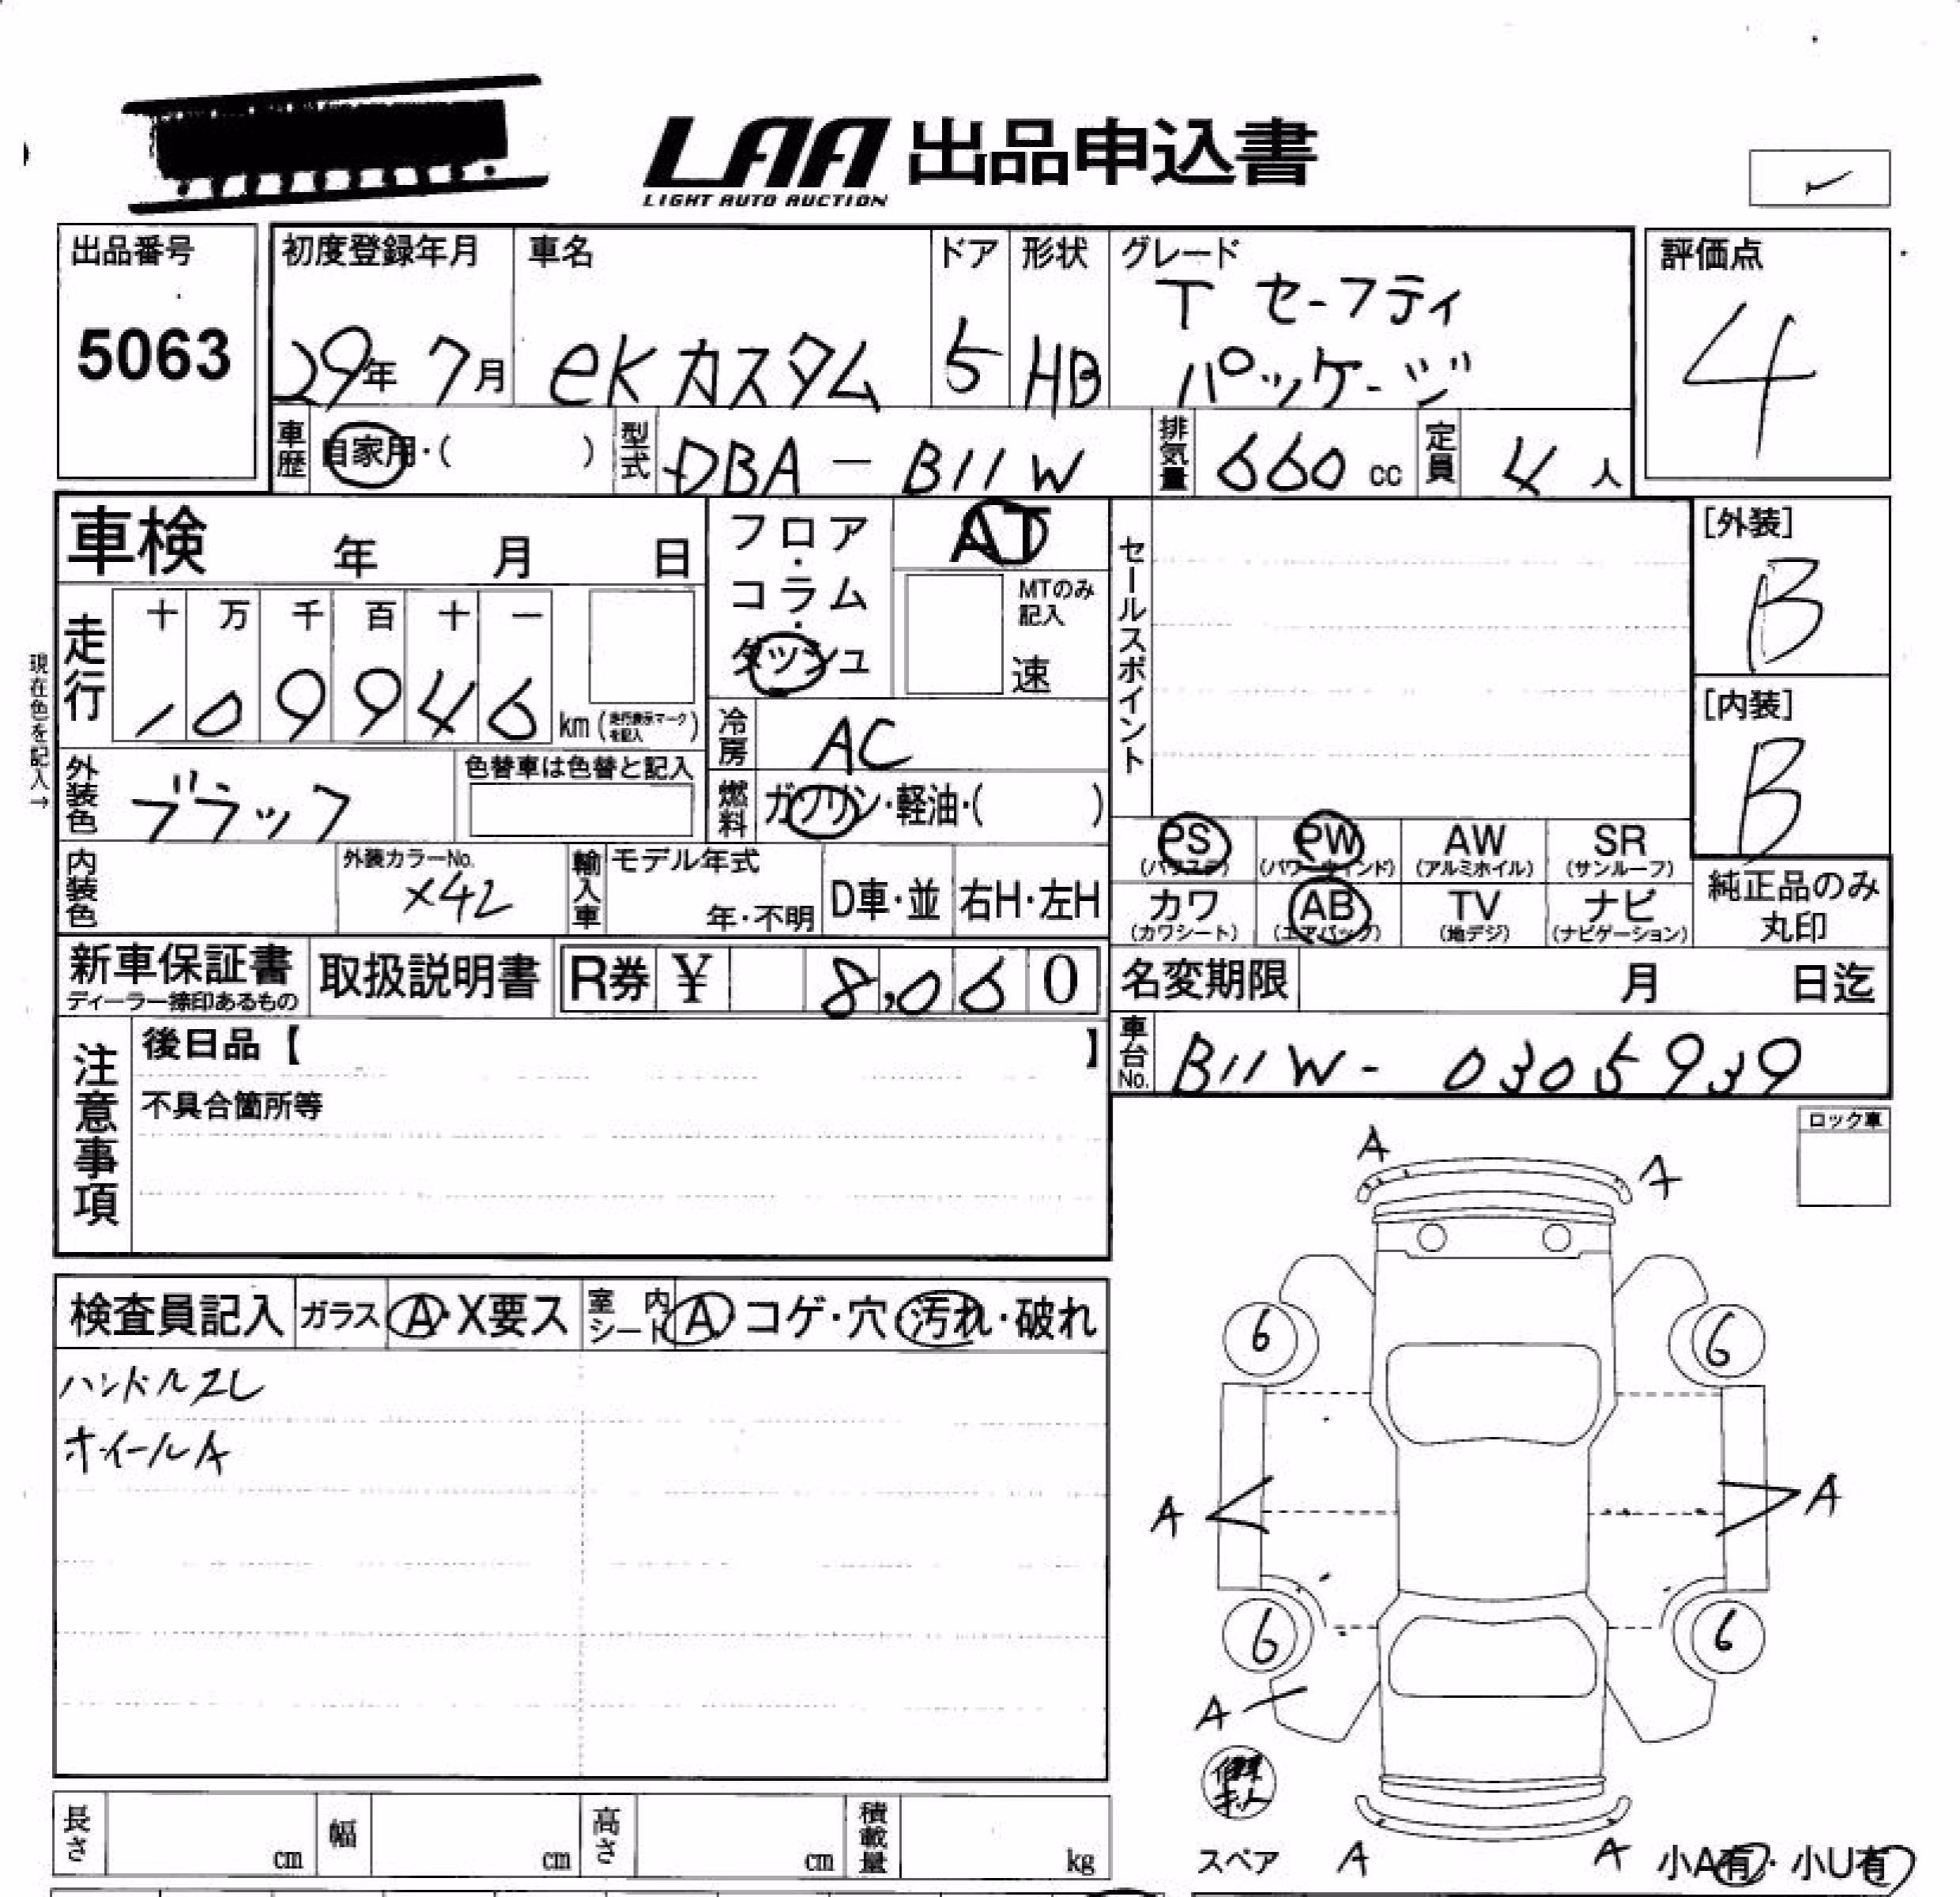 LAA 出品申込書
LIGHT AUTO AUCTION
出品番号
5063
初度登録年月
29年 7月
車名
eKカスタム
ドア
5
形状
HB
グレード
T セーフティ
パッケージ
評価点
4
車歴
自家用・( )
型式
DBA-B11W
排気量
660 cc
定員
4 人
車検 年 月 日
フロア・コラム・ダッシュ
AT
MTのみ記入
速
セールスポイント
[外装]
B
[内装]
B
現在色を記入→
走行
十 万 千 百 十 一
1 0 9 9 4 6
km (走行表示マークを記入)
冷房
AC
外装色
ブラック
色替車は色替と記入
燃料
ガソリン・軽油・( )
内装色
外装カラーNo.
X42
輸入車
モデル年式
年・不明
D車・並
右H・左H
PS (パワステ)
PW (パワーウィンド)
AW (アルミホイル)
SR (サンルーフ)
カワ (カワシート)
AB (エアバッグ)
TV (地デジ)
ナビ (ナビゲーション)
純正品のみ
丸印
新車保証書
ディーラー捺印あるもの
取扱説明書
R券 ¥ 8,060
名変期限 月 日迄
車台No.
B11W-0305939
注意事項
後日品【 】
不具合箇所等
ロック車
A
A
検査員記入
ガラス A・X要ス
室内シート A コゲ・穴 汚れ・破れ
ハンドルスレ
ホイールA
6
6
A
A
6
6
A
スペア
A
A
小A有・小U有
長さ cm
幅 cm
高さ cm
積載量 kg